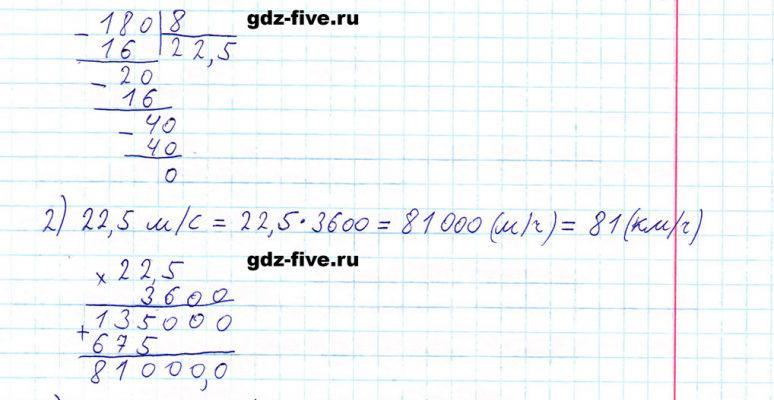 gdz-five.ru
- 180 | 8
16 | 22,5
- 20
16
- 40
40
0
2) 22,5 м/с = 22,5·3600 = 81000 (м/ч) = 81 (км/ч)
gdz-five.ru
× 22,5
3600
135000
+ 675
81000,0